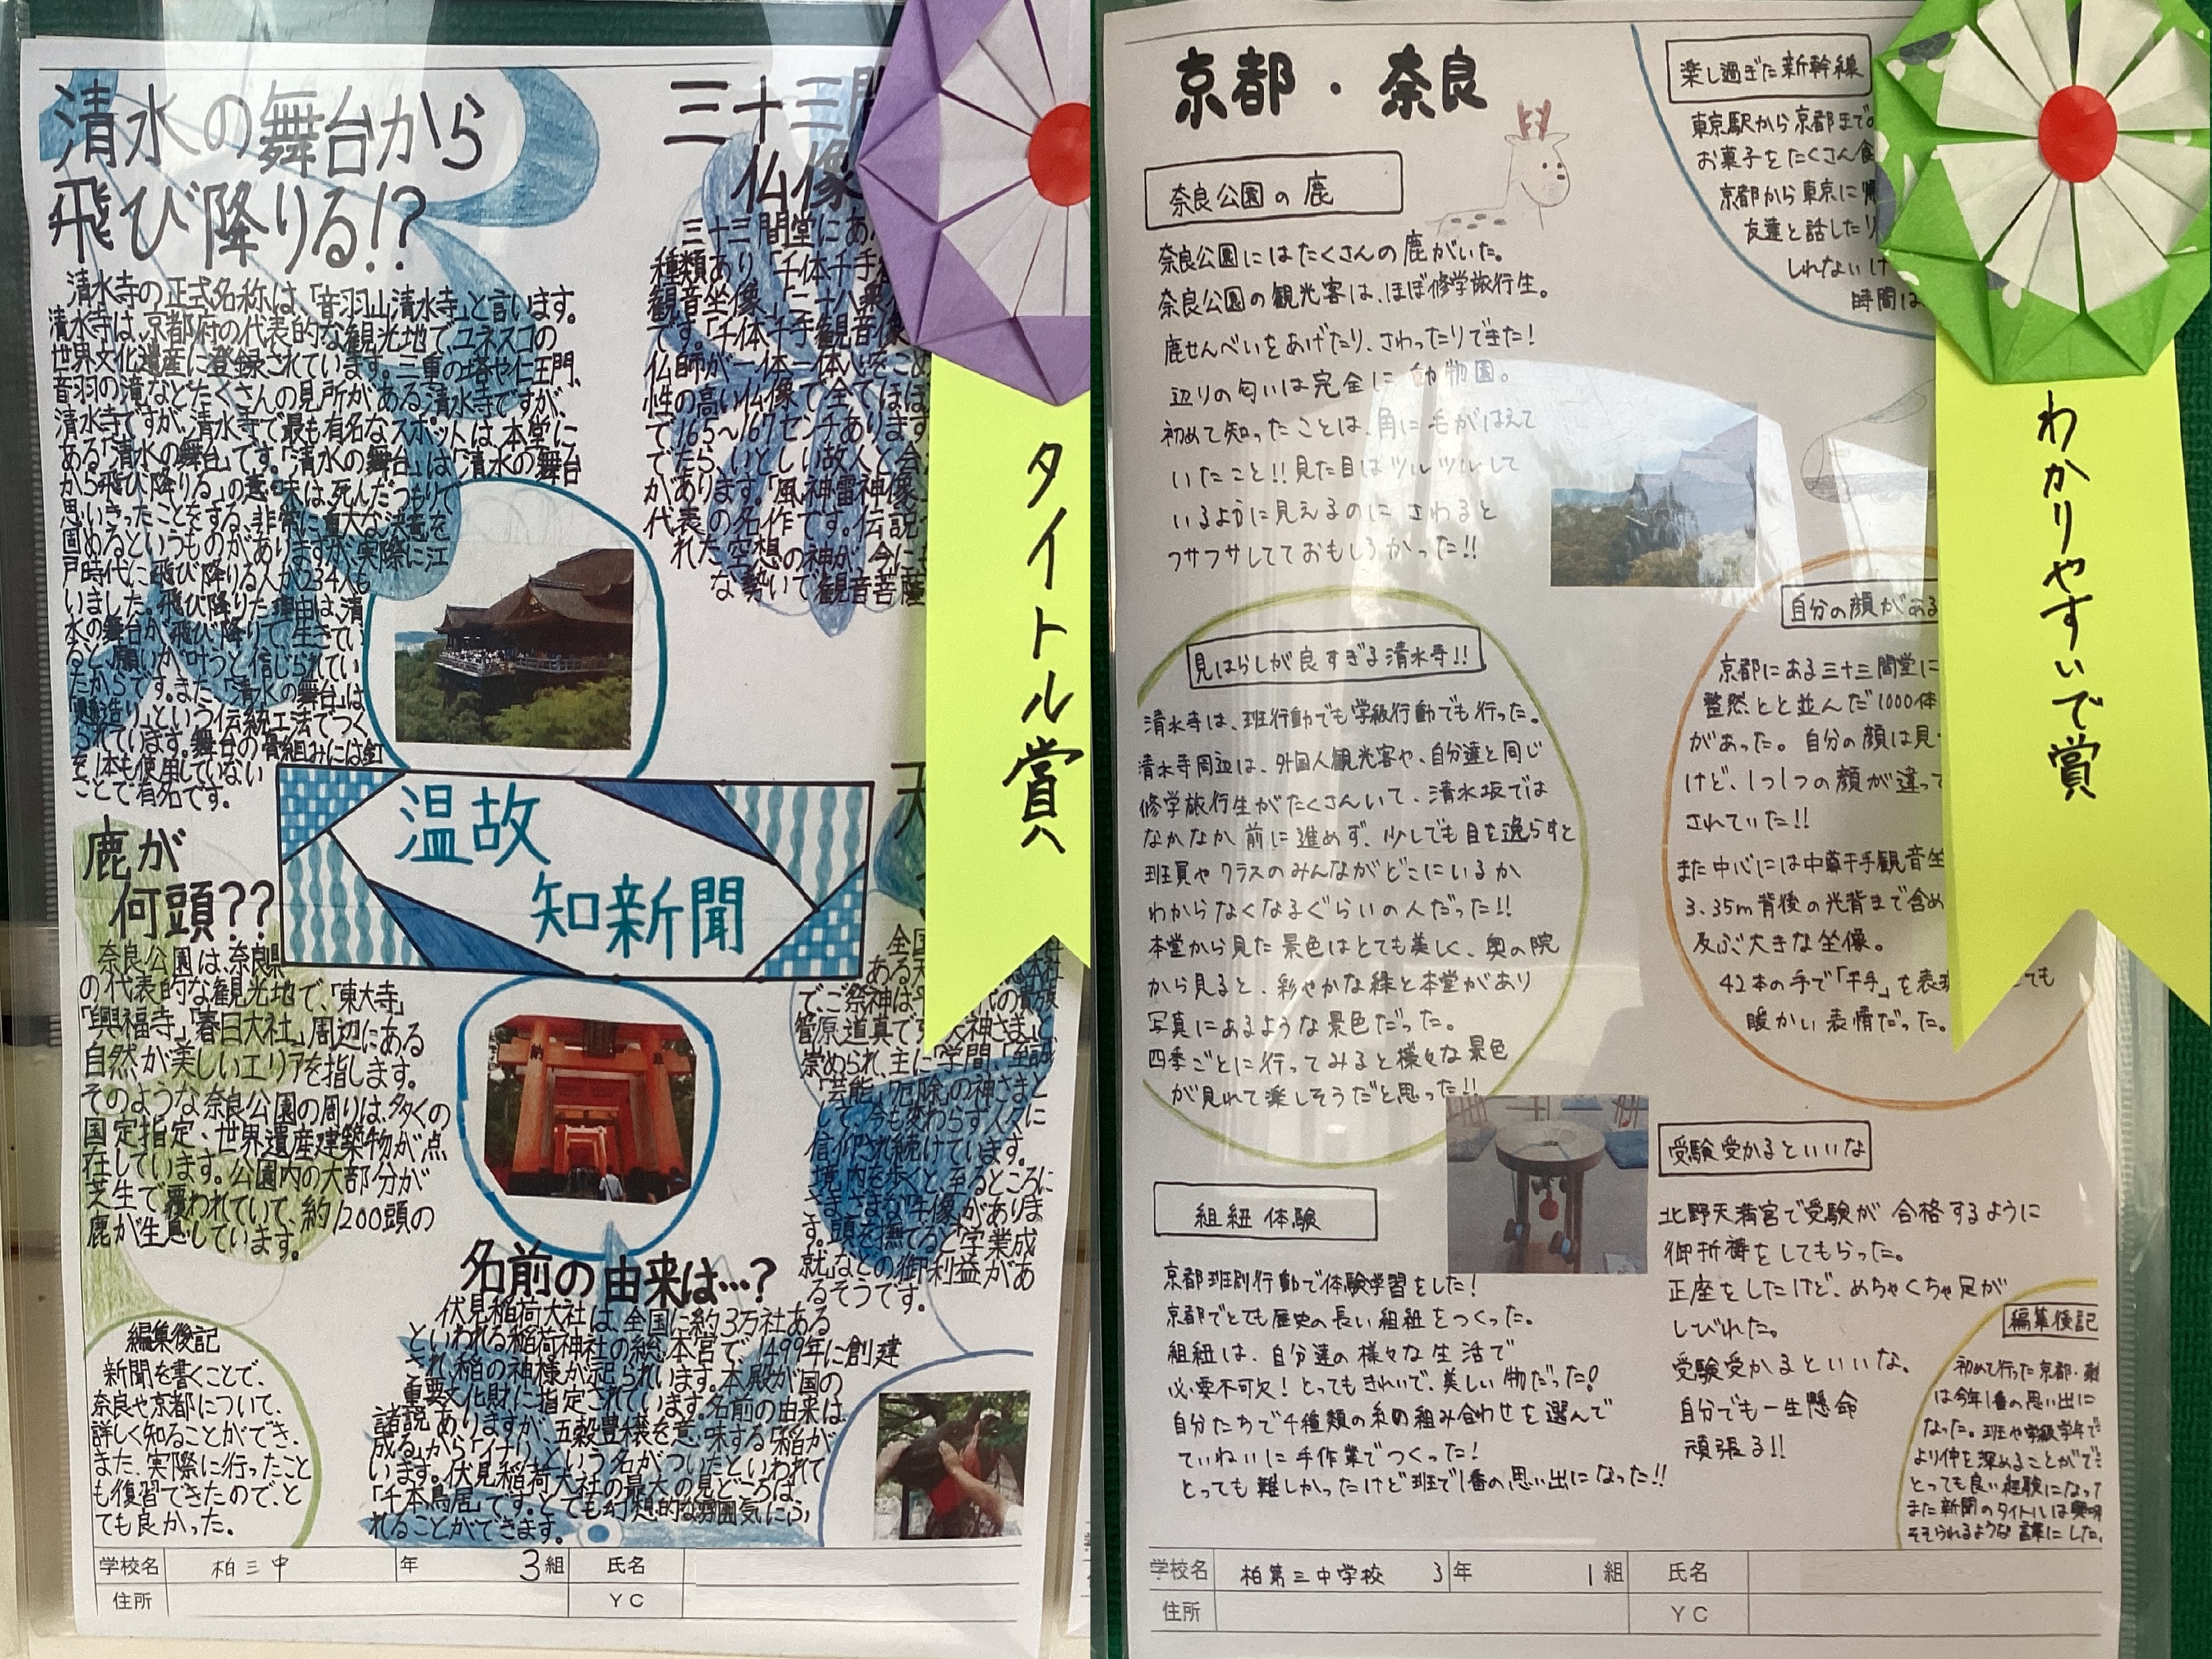 清水の舞台から
飛び降りる!?
清水寺の正式名称は、「音羽山清水寺」と言います。
清水寺は、京都府の代表的な観光地で、ユネスコの
世界文化遺産に登録されています。三重の塔や仁王門、
音羽の滝などたくさんの見所がある清水寺ですが、
清水寺ですが、清水寺で最も有名なスポットは、本堂に
ある「清水の舞台」です。「清水の舞台」は、「清水の舞台
から飛び降りる」の意味は、死んだつもりで
思いきったことをする、非常に重大な決意を
固めるというものがありますが、実際に江
戸時代に、飛び降りる人が234人も
いました。飛び降りた理由は、清
水の舞台が飛び降りて生きてい
ると、願いが叶うと信じられてい
たからです。また、「清水の舞台」は
「懸造り」という伝統工法でつく
られています。舞台の骨組みには釘
を1本も使用していない
ことで有名です。
三十三間
仏像
三十三間堂にあ
温故
知新聞
鹿が
何頭??
奈良公園は、奈良県
の代表的な観光地で、「東大寺」
「興福寺」「春日大社」周辺にある
自然が美しいエリアを指します。
そのような奈良公園の周りは、多くの
国定指定、世界遺産建築物が点
在しています。公園内の大部分が
芝生で覆われていて、約1200頭の
鹿が生息しています。
天
全国
ある天
で、ご祭神は
菅原道真です。
崇められ、主に「学問」「至誠」
「芸能」「厄除」の神さまと
して、今も変わらず人々に
信仰され続けています。
境内を歩くと、至るところに
さまざまな「牛」像がありま
す。頭を撫でると「学業成
就」などの御利益があ
るそうです。
名前の由来は…?
伏見稲荷大社は、全国に約3万社ある
といわれる稲荷神社の総本宮で、1499年に創建
され、稲の神様が祀られています。本殿が国の
重要文化財に指定されています。名前の由来は
諸説ありますが、五穀豊穣を意味する「稲が
成る」から「イナリ」という名がついたといわれて
います。伏見稲荷大社の最大の見どころは、
「千本鳥居」です。とても幻想的な雰囲気にふ
れることができます。
編集後記
新聞を書くことで、
奈良や京都について、
詳しく知ることができ、
また、実際に行ったこと
も復習できたので、と
ても良かった。
学校名 柏三中 年 3組 氏名
住所 YC
タイトル賞
京都・奈良
奈良公園の鹿
奈良公園にはたくさんの鹿がいた。
奈良公園の観光客は、ほぼ修学旅行生。
鹿せんべいをあげたり、さわったりできた!
辺りの匂いは完全に動物園。
初めて知ったことは、角に毛がはえて
いたこと!!見た目はツルツルして
いるように見えるのにさわると
フサフサしてておもしろかった!!
楽し過ぎた新幹線
東京駅から京都まで
お菓子をたくさん食
京都から東京に帰
友達と話したり
しれないけ
時間は
見はらしが良すぎる清水寺!!
清水寺は、班行動でも学級行動でも行った。
清水寺周辺は、外国人観光客や、自分達と同じ
修学旅行生がたくさんいて、清水坂では
なかなか前に進めず、少しでも目を逸らすと
班員やクラスのみんながどこにいるか
わからなくなるぐらいの人だった!!
本堂から見た景色はとても美しく、奥の院
から見ると、彩やかな緑と本堂があり
写真にあるような景色だった。
四季ごとに行ってみると様々な景色
が見れて楽しそうだと思った!!
自分の顔がある
京都にある三十三間堂に
整然とと並んだ1000体
があった。自分の顔は見
けど、1つ1つの顔が違って
されていた!!
また中心には中尊千手観音坐
3.35m背後の光背まで含め
及ぶ大きな坐像。
42本の手で「千手」を表現 ても
暖かい表情だった。
組紐体験
京都班別行動で体験学習をした!
京都でとても歴史の長い組紐をつくった。
組紐は、自分達の様々な生活で
必要不可欠!とってもきれいで、美しい物だった!
自分たちで4種類の糸の組み合わせを選んで
ていねいに手作業でつくった!
とっても難しかったけど班で1番の思い出になった!!
受験受かるといいな
北野天満宮で受験が合格するように
御祈祷をしてもらった。
正座をしたけど、めちゃくちゃ足が
しびれた。
受験受かるといいな。
自分でも一生懸命
頑張る!!
編集後記
初めて行った京都・奈
は今年1番の思い出に
なった。班や学級学年で
より仲を深めることがで
とっても良い経験になっ
また新聞のタイトルは興味
そそられるような言葉にした。
学校名 柏第三中学校 3年 1組 氏名
住所 YC
わかりやすいで賞